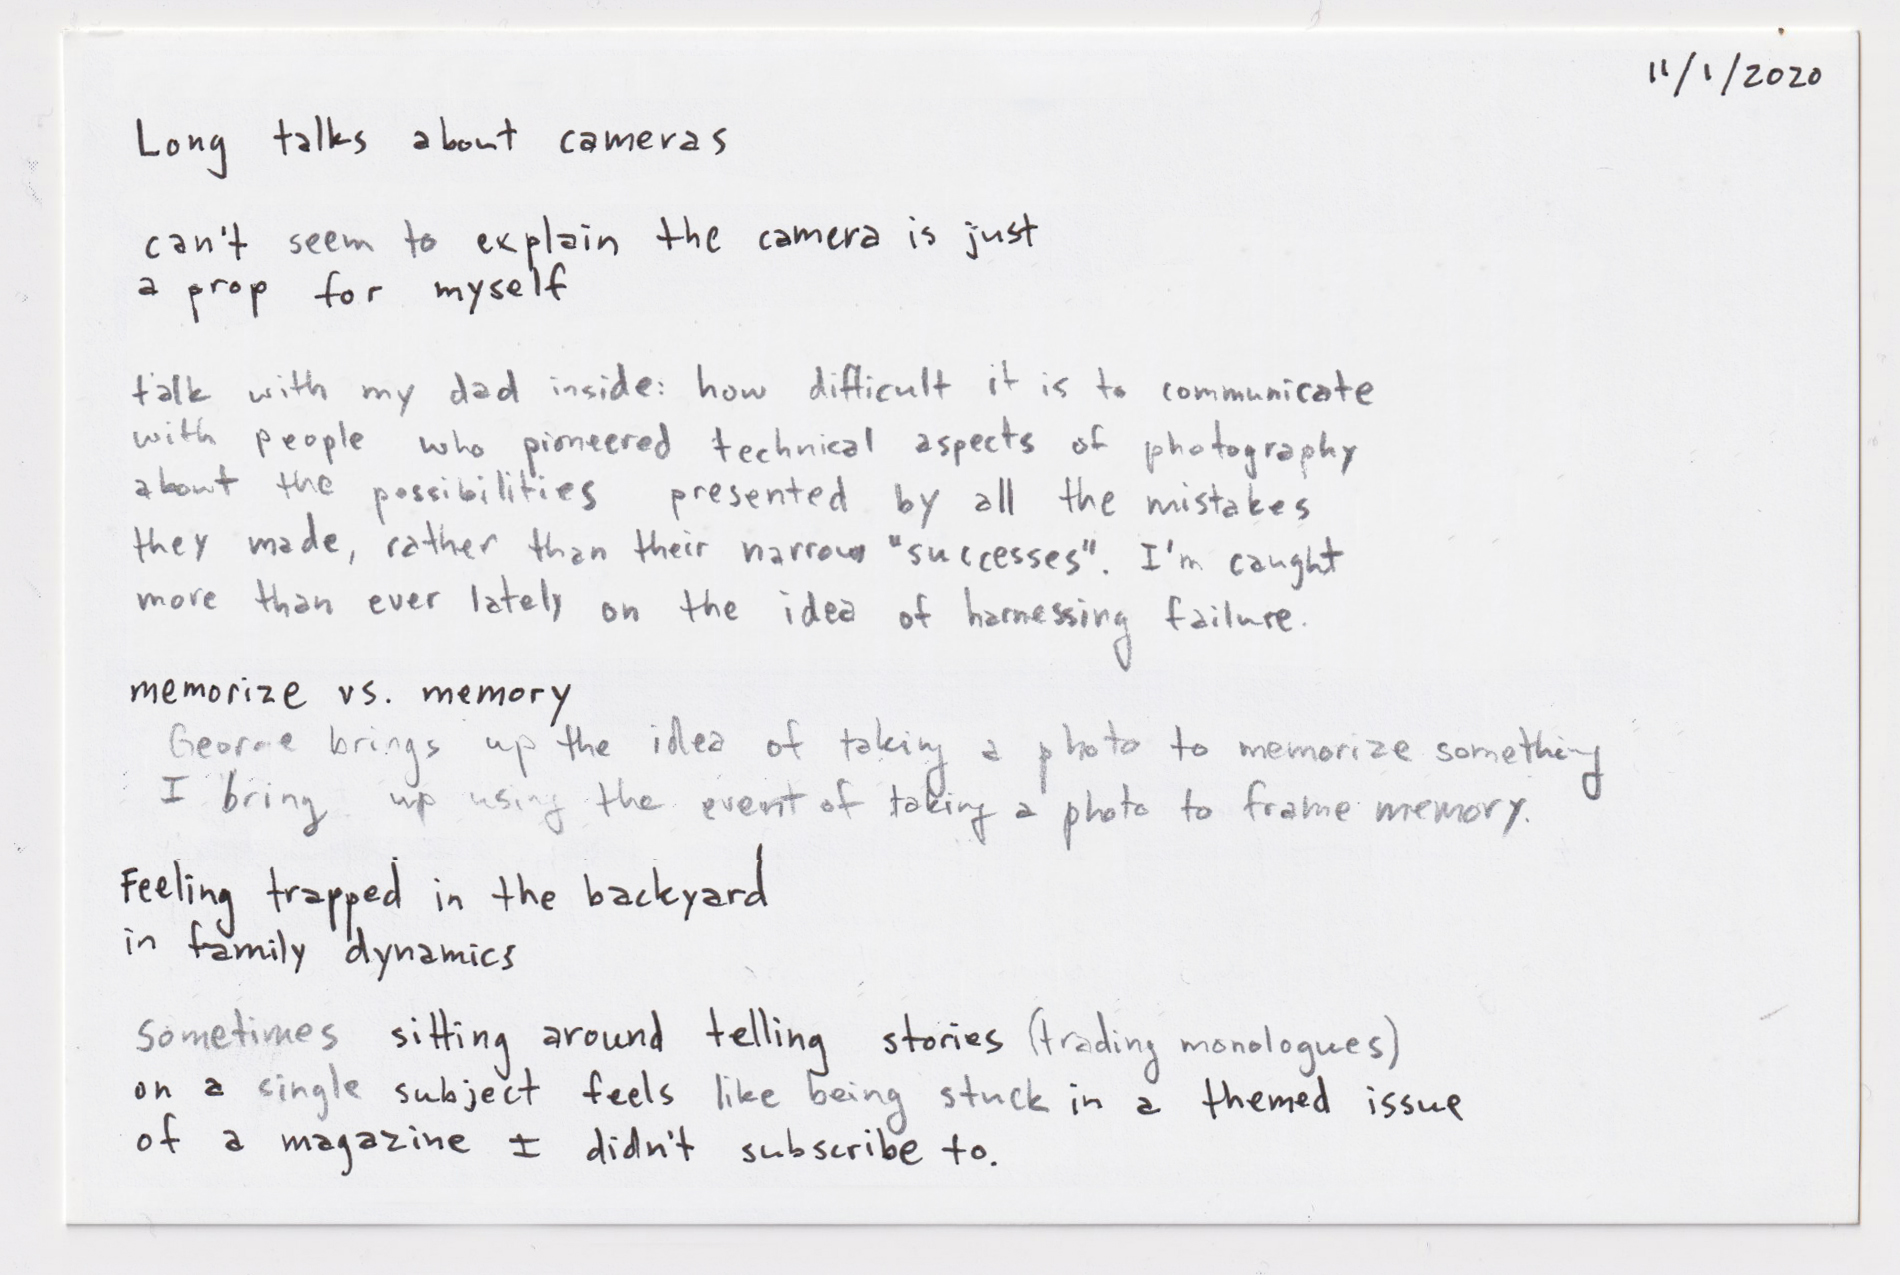 11/1/2020
Long talks about cameras
can't seem to explain the camera is just
a prop for myself
talk with my dad inside: how difficult it is to communicate
with people who pioneered technical aspects of photography
about the possibilities presented by all the mistakes
they made, rather than their narrow "successes". I'm caught
more than ever lately on the idea of harnessing failure.
memorize vs. memory
George brings up the idea of taking a photo to memorize something
I bring up using the event of taking a photo to frame memory.
Feeling trapped in the backyard
in family dynamics
Sometimes sitting around telling stories (trading monologues)
on a single subject feels like being stuck in a themed issue
of a magazine I didn't subscribe to.